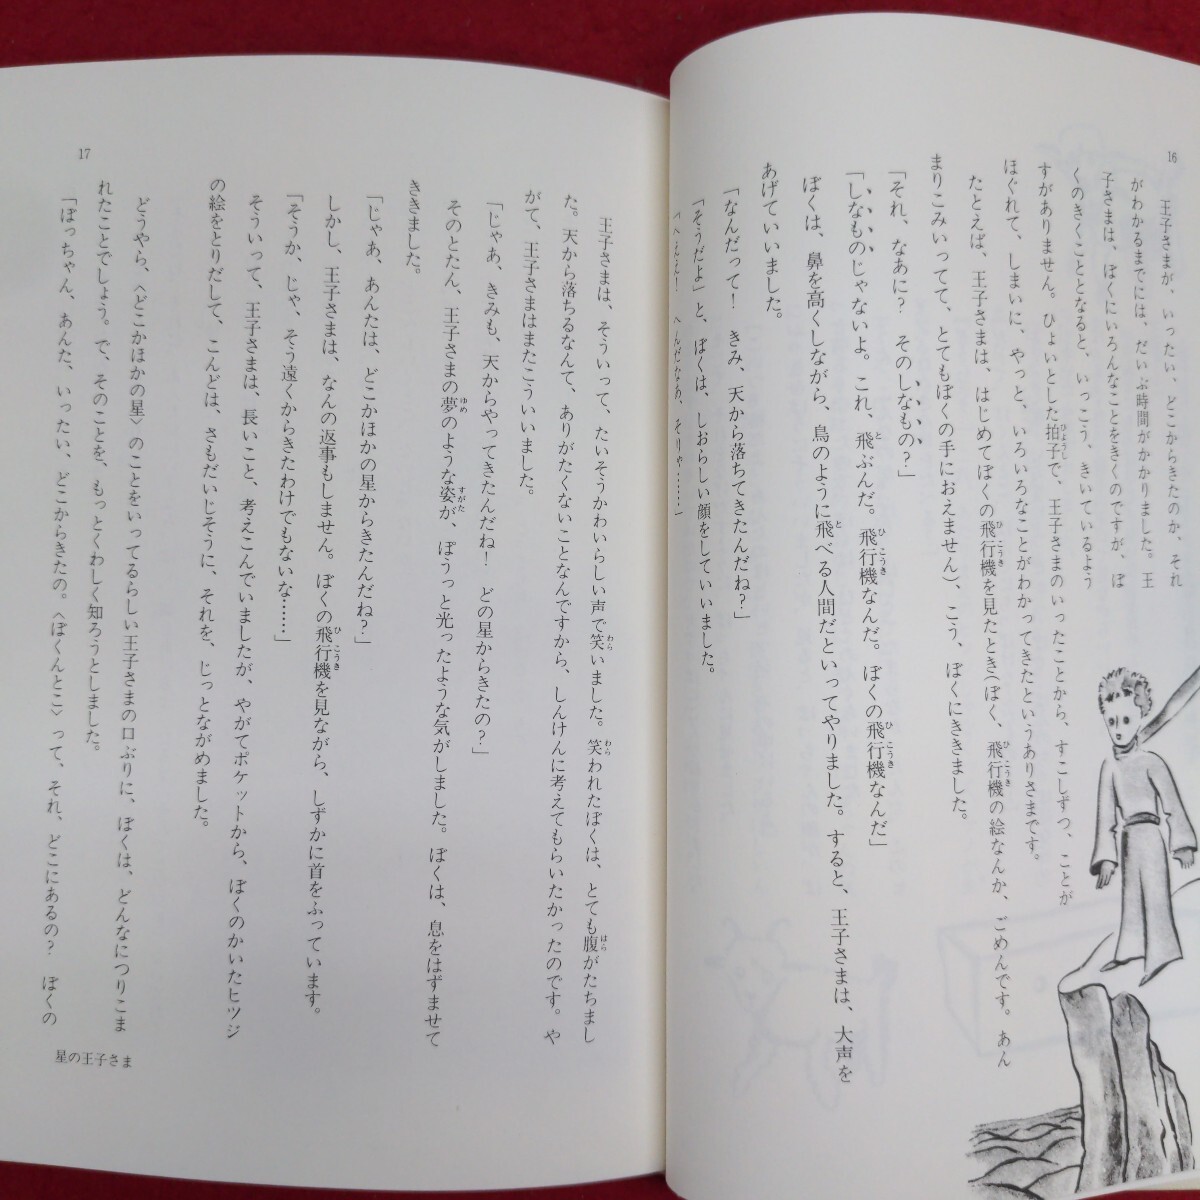 16
王子さまが、いったい、どこからきたのか、それ
がわかるまでには、だいぶ時間がかかりました。王
子さまは、ぼくにいろんなことをきくのですが、ぼ
くのきくこととなると、いっこう、きいているよう
すがありません。ひょいとした拍子で、王子さまのいったことから、すこしずつ、ことが
ほぐれて、しまいに、やっと、いろいろなことがわかってきたというありさまです。
たとえば、王子さまは、はじめてぼくの飛行機を見たとき(ぼく、飛行機の絵なんか、ごめんです。あん
まりこみいってて、とてもぼくの手におえません)、こう、ぼくにききました。
「それ、なあに? そのしなもの?」
「しなものじゃないよ。これ、飛ぶんだ。飛行機なんだ。ぼくの飛行機なんだ」
ぼくは、鼻を高くしながら、鳥のように飛べる人間だといってやりました。すると、王子さまは、大声を
あげていいました。
「なんだって! きみ、天から落ちてきたんだね?」
「そうだよ」と、ぼくは、しおらしい顔をしていいました。
「へええ! へんだなあ、そりゃ……」
王子さまは、そういって、たいそうかわいらしい声で笑いました。笑われたぼくは、とても腹がたちまし
た。天から落ちるなんて、ありがたくないことなんですから、しんけんに考えてもらいたかったのです。や
がて、王子さまはまたこういいました。
「じゃあ、きみも、天からやってきたんだね! どの星からきたの?」
そのとたん、王子さまの夢のような姿が、ぽうっと光ったような気がしました。ぼくは、息をはずませて
ききました。
「じゃあ、あんたは、どこかほかの星からきたんだね?」
しかし、王子さまは、なんの返事もしません。ぼくの飛行機を見ながら、しずかに首をふっています。
「そうか、じゃ、そう遠くからきたわけでもないな……」
そういって、王子さまは、長いこと、考えこんでいましたが、やがてポケットから、ぼくのかいたヒツジ
の絵をとりだして、こんどは、さもだいじそうに、それを、じっとながめました。
どうやら、〈どこかほかの星〉のことをいってるらしい王子さまの口ぶりに、ぼくは、どんなにつりこま
れたことでしょう。で、そのことを、もっとくわしく知ろうとしました。
「ぼっちゃん、あんた、いったい、どこからきたの。〈ぼくんとこ〉って、それ、どこにあるの? ぼくの
17
星の王子さま